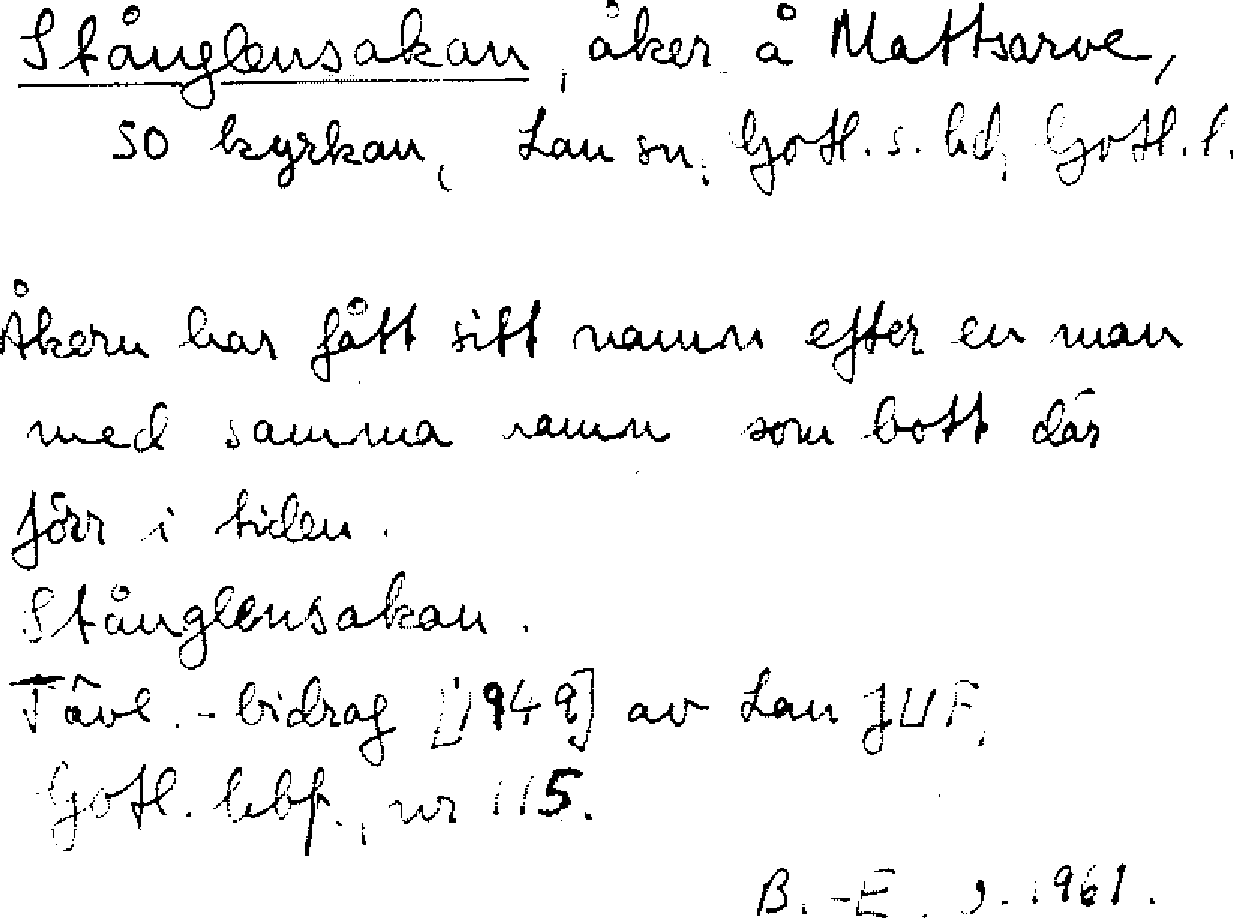 Stånglensakan, åker å Mattsarve,
SO kyrkan, Lau sn, Gotl. s. hd, Gotl. l.
Åkern har fått sitt namn efter en man
med samma namn som bott där
förr i tiden.
Stånglensakan.
Tävl.-bidrag [1949] av Lau JUF,
Gotl. hbf., nr 115.
B.-E. J. 1961.